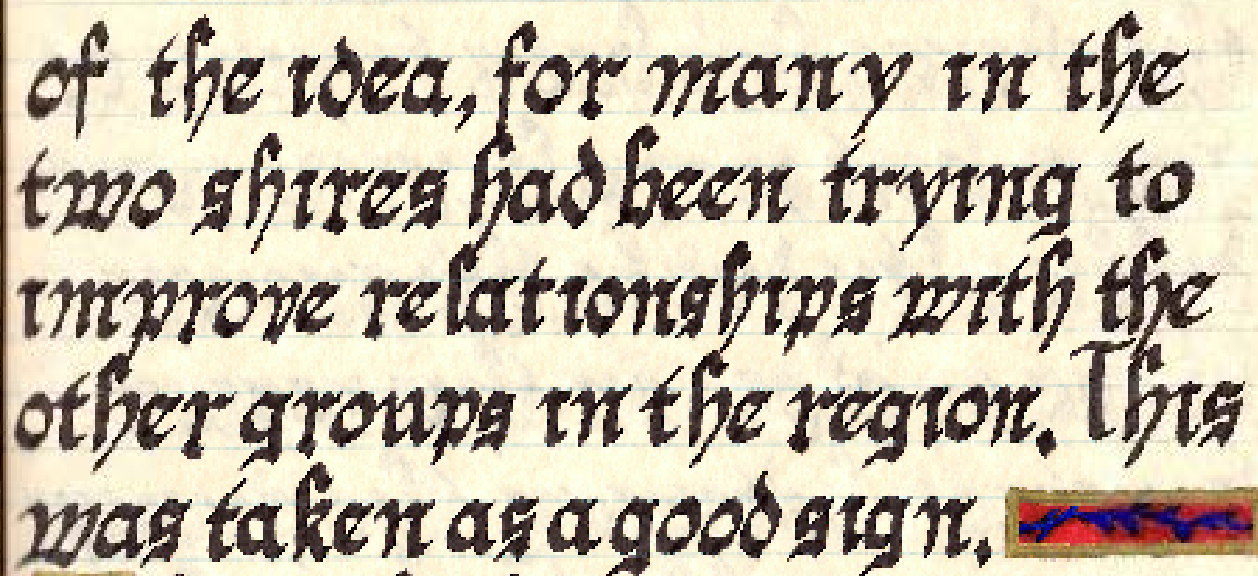 of the idea, for many in the
two shires had been trying to
improve relationships with the
other groups in the region. This
was taken as a good sign.